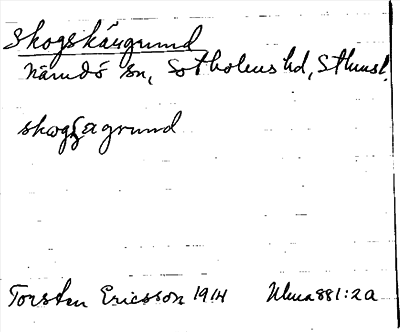 Skogskärgrund
Nämdö sn, Sotholms hd, Sthmsl.
skogʃagrund
Torsten Ericsson 1914 Ulma 881:2a